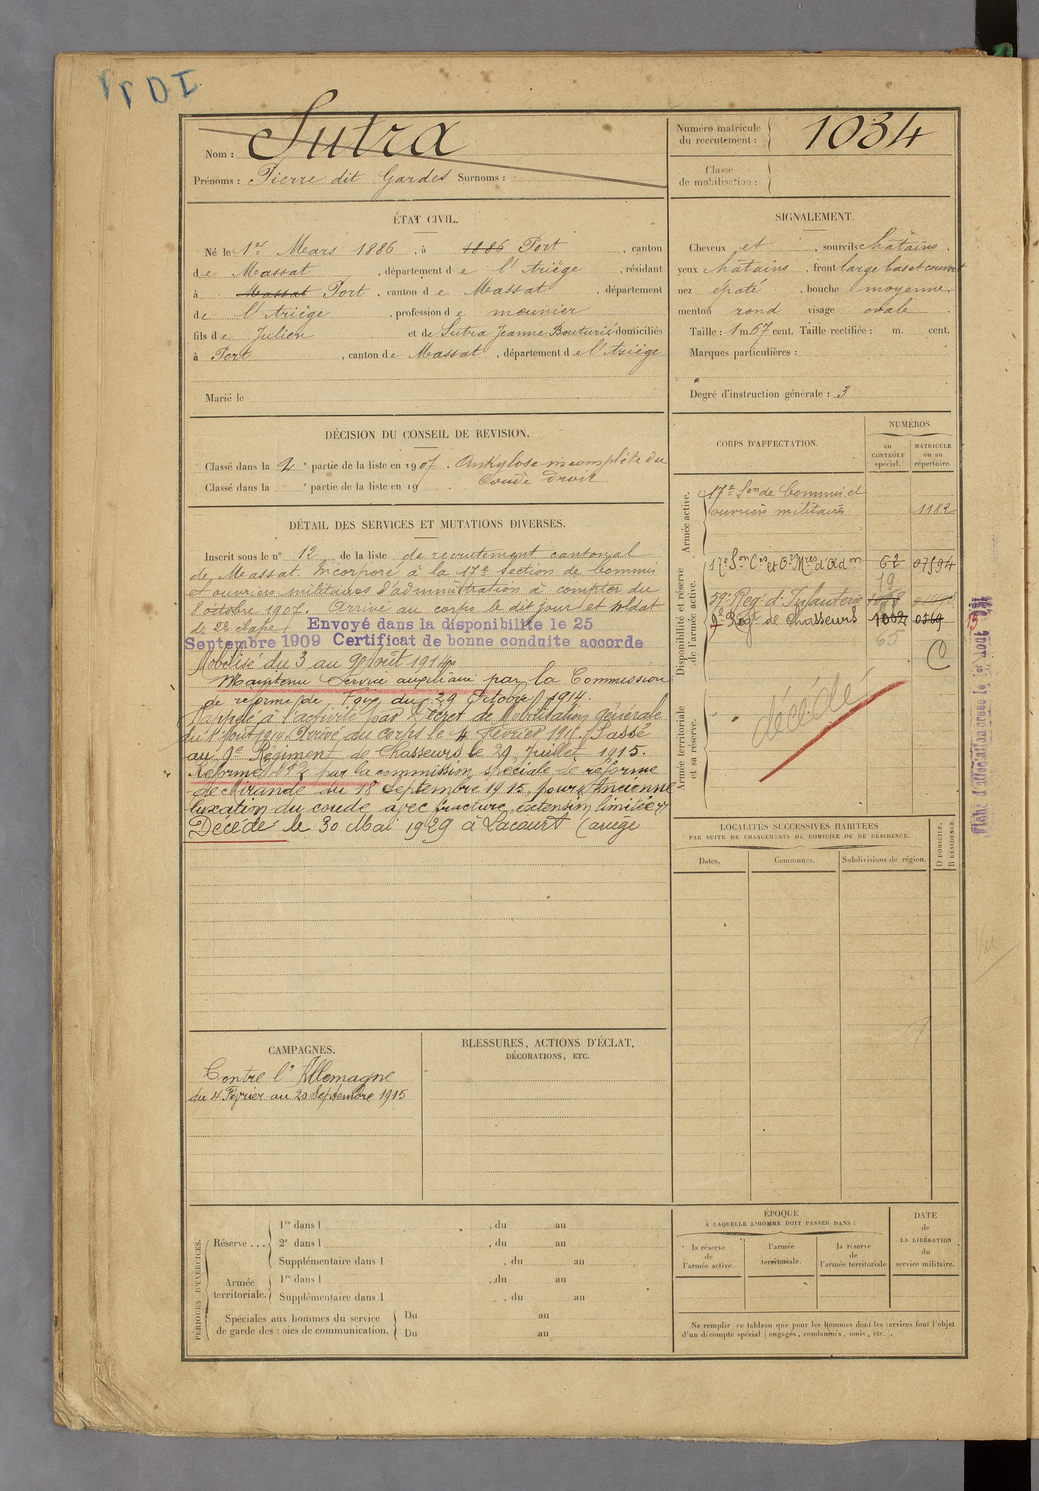 Nom : Sutra
Prénoms : Pierre dit Gardes Surnoms :
Numéro matricule
du recrutement : 1034
Classe
de mobilisation :
ÉTAT CIVIL.
Né le 1er Mars 1886 , à 1886 Port , canton
de Massat , département de l'Ariège , résidant
à Massat Port , canton de Massat , département
de l'Ariège , profession de meunier
fils de Julien et de Sutra Jeanne domiciliés
à Port , canton de Massat , département de l'Ariège
Marié le
SIGNALEMENT.
Cheveux et , sourcils châtains
yeux châtains , front large bas et couvert
nez épaté , bouche moyenne
menton rond visage ovale
Taille : 1 m. 67 cent. Taille rectifiée : m. cent.
Marques particulières :
Degré d'instruction générale : 3
DÉCISION DU CONSEIL DE REVISION.
Classé dans la 2e partie de la liste en 1907. Ankylose incomplète du
coude droit
Classé dans la e partie de la liste en 19 .
DÉTAIL DES SERVICES ET MUTATIONS DIVERSES.
Inscrit sous le n° 12 de la liste de recrutement cantonal
de Massat. Incorporé à la 17e Section de Commis
et ouvriers militaires d'administration à compter du
8 octobre 1907. Arrivé au corps le dit jour et soldat
de 2e classe,
Envoyé dans la disponibilité le 25
Septembre 1909 Certificat de bonne conduite accordé
Mobilisé du 3 au 9 Août 1914
Maintenu Service auxiliaire par la Commission
de réforme de Foix du 29 Octobre 1914.
Rappelé à l'activité par Décret de Mobilisation générale
du 1er Août 1914. Arrivé au corps le 4 Février 1915. Passé
au 9e Régiment de Chasseurs le 29 Juillet 1915.
Réformé N°2 par la commission spéciale de réforme
de Mirande du 18 Septembre 1915 pour Ancienne
luxation du coude avec fracture, extension limitée
Décédé le 30 Mai 1929 à Lacourt (ariège
CORPS D'AFFECTATION.
NUMÉROS
au
CONTRÔLE
spécial.
MATRICULE
ou au
répertoire.
Armée active.
17e Son de Commis et
ouvriers militaires 1182
Disponibilité et réserve
de l'armée active.
17e Son Cis et Ors Mres d'Adon 62 07594
19
59e Reg. d'Infanterie
9e Regt de Chasseurs 1002 0369
65
C
Armée territoriale
et sa réserve.
décédé
LOCALITÉS SUCCESSIVES HABITÉES
PAR SUITE DE CHANGEMENTS DE DOMICILE OU DE RÉSIDENCE.
Dates.
Communes.
Subdivisions de région.
D DOMICILE.
R RÉSIDENCE.
CAMPAGNES.
Contre l'Allemagne
du 4 Février au 20 Septembre 1915
BLESSURES, ACTIONS D'ÉCLAT,
DÉCORATIONS, ETC.
PÉRIODES D'EXERCICES.
Réserve ... 1re dans l , du au
2e dans l , du au
Supplémentaire dans l , du au
Armée
territoriale. 1re dans l , du au
Supplémentaire dans l , du au
Spéciales aux hommes du service
de garde des voies de communication. Du au
Du au
ÉPOQUE
À LAQUELLE L'HOMME DOIT PASSER DANS :
la réserve
de
l'armée active.
l'armée
territoriale.
la réserve
de
l'armée territoriale
DATE
de
LA LIBÉRATION
du
service militaire.
Ne remplir ce tableau que pour les hommes dont les services font l'objet
d'un décompte spécial (engagés, condamnés, omis, etc.).
Vu